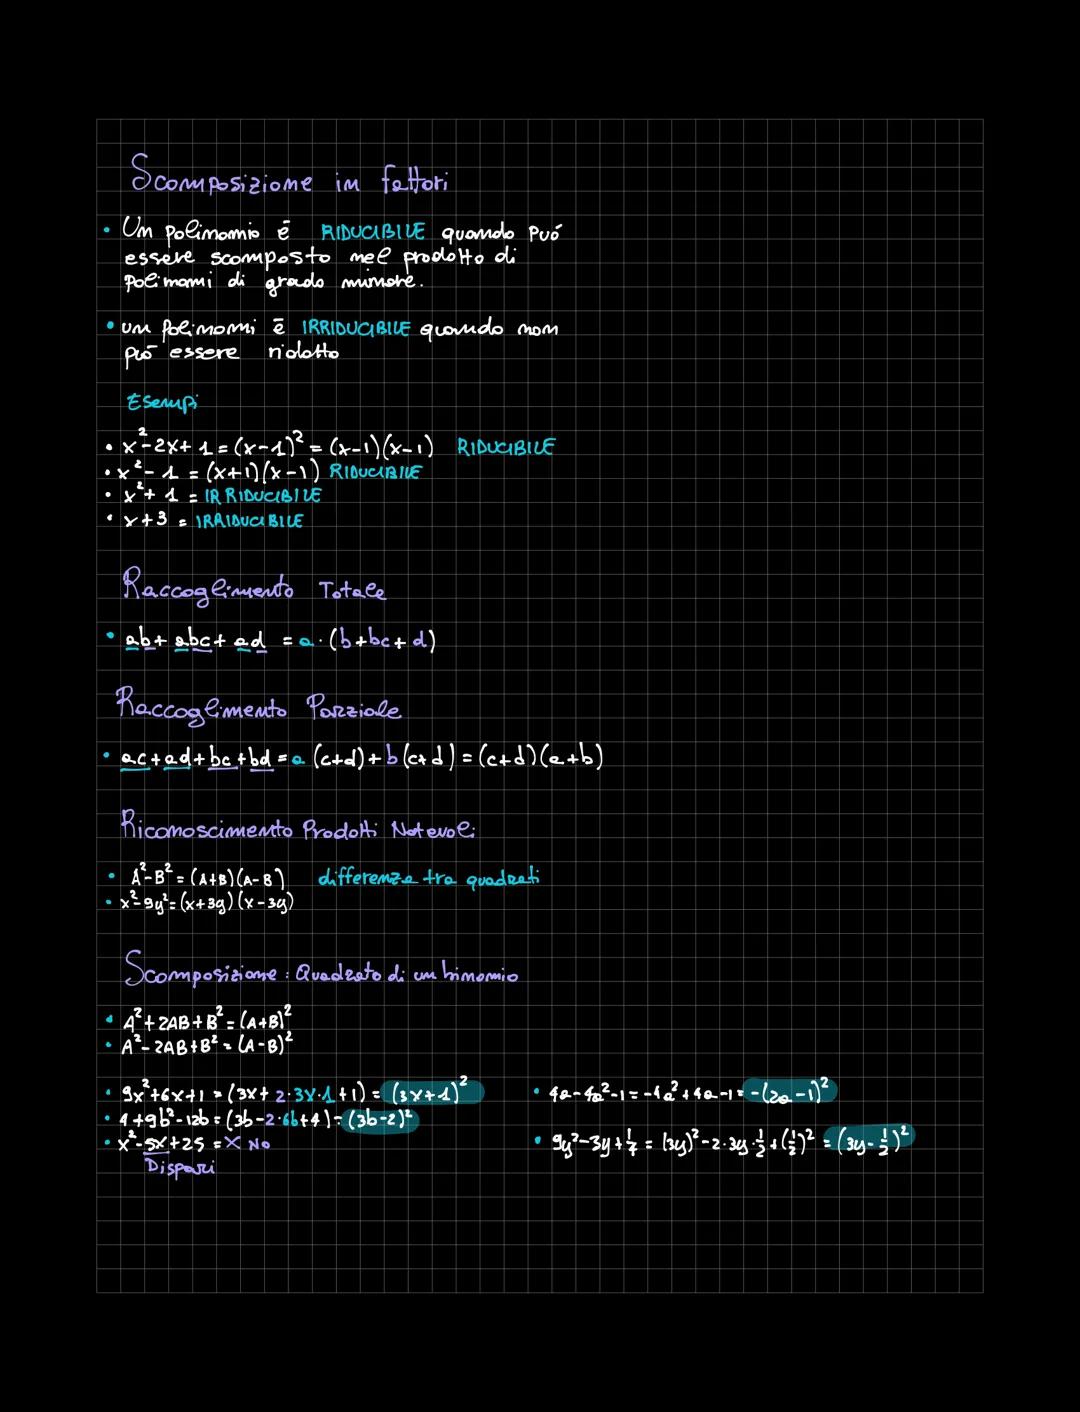 Scomposizione in fattori
• Un polinomio è RIDUCIBILE quando può
essere scomposto nel prodotto di
polinomi di grado minore.
• un polinomi è IRRIDUCIBILE quando non
può essere ridotto
Esempi
• x²-2x+1=(x-1)²=(x-1)(x-1) RIDUCIBILE
• x²-1=(x+1)(x-1) RIDUCIBILE
• x²+1=IRRIDUCIBILE
• x+3=IRRIDUCIBILE
Raccoglimento Totale
• ab+abc+ad=a·(b+bc+d)
Raccoglimento Parziale
• ac+ad+bc+bd=a(c+d)+b(c+d)=(c+d)(a+b)
Riconoscimento Prodotti Notevoli
• A²-B²=(A+B)(A-B) differenza tra quadrati
• x²-9y²=(x+3y)(x-3y)
Scomposizione: Quadrato di un binomio
• A²+2AB+B²=(A+B)²
• A²-2AB+B²=(A-B)²
• 9x²+6x+1=(3x+2·3x·1+1)=(3x+1)²
• 4+9b²-12b=(3b-2·6b+4)=(3b-2)²
• x²-5x+25=X NO
Dispari
• 4a-4a²-1=-4a²+4a-1=-(2a-1)²
• 9y²-3y+1/4=(3y)²-2·3y·1/2+(1/2)²=(3y-1/2)²